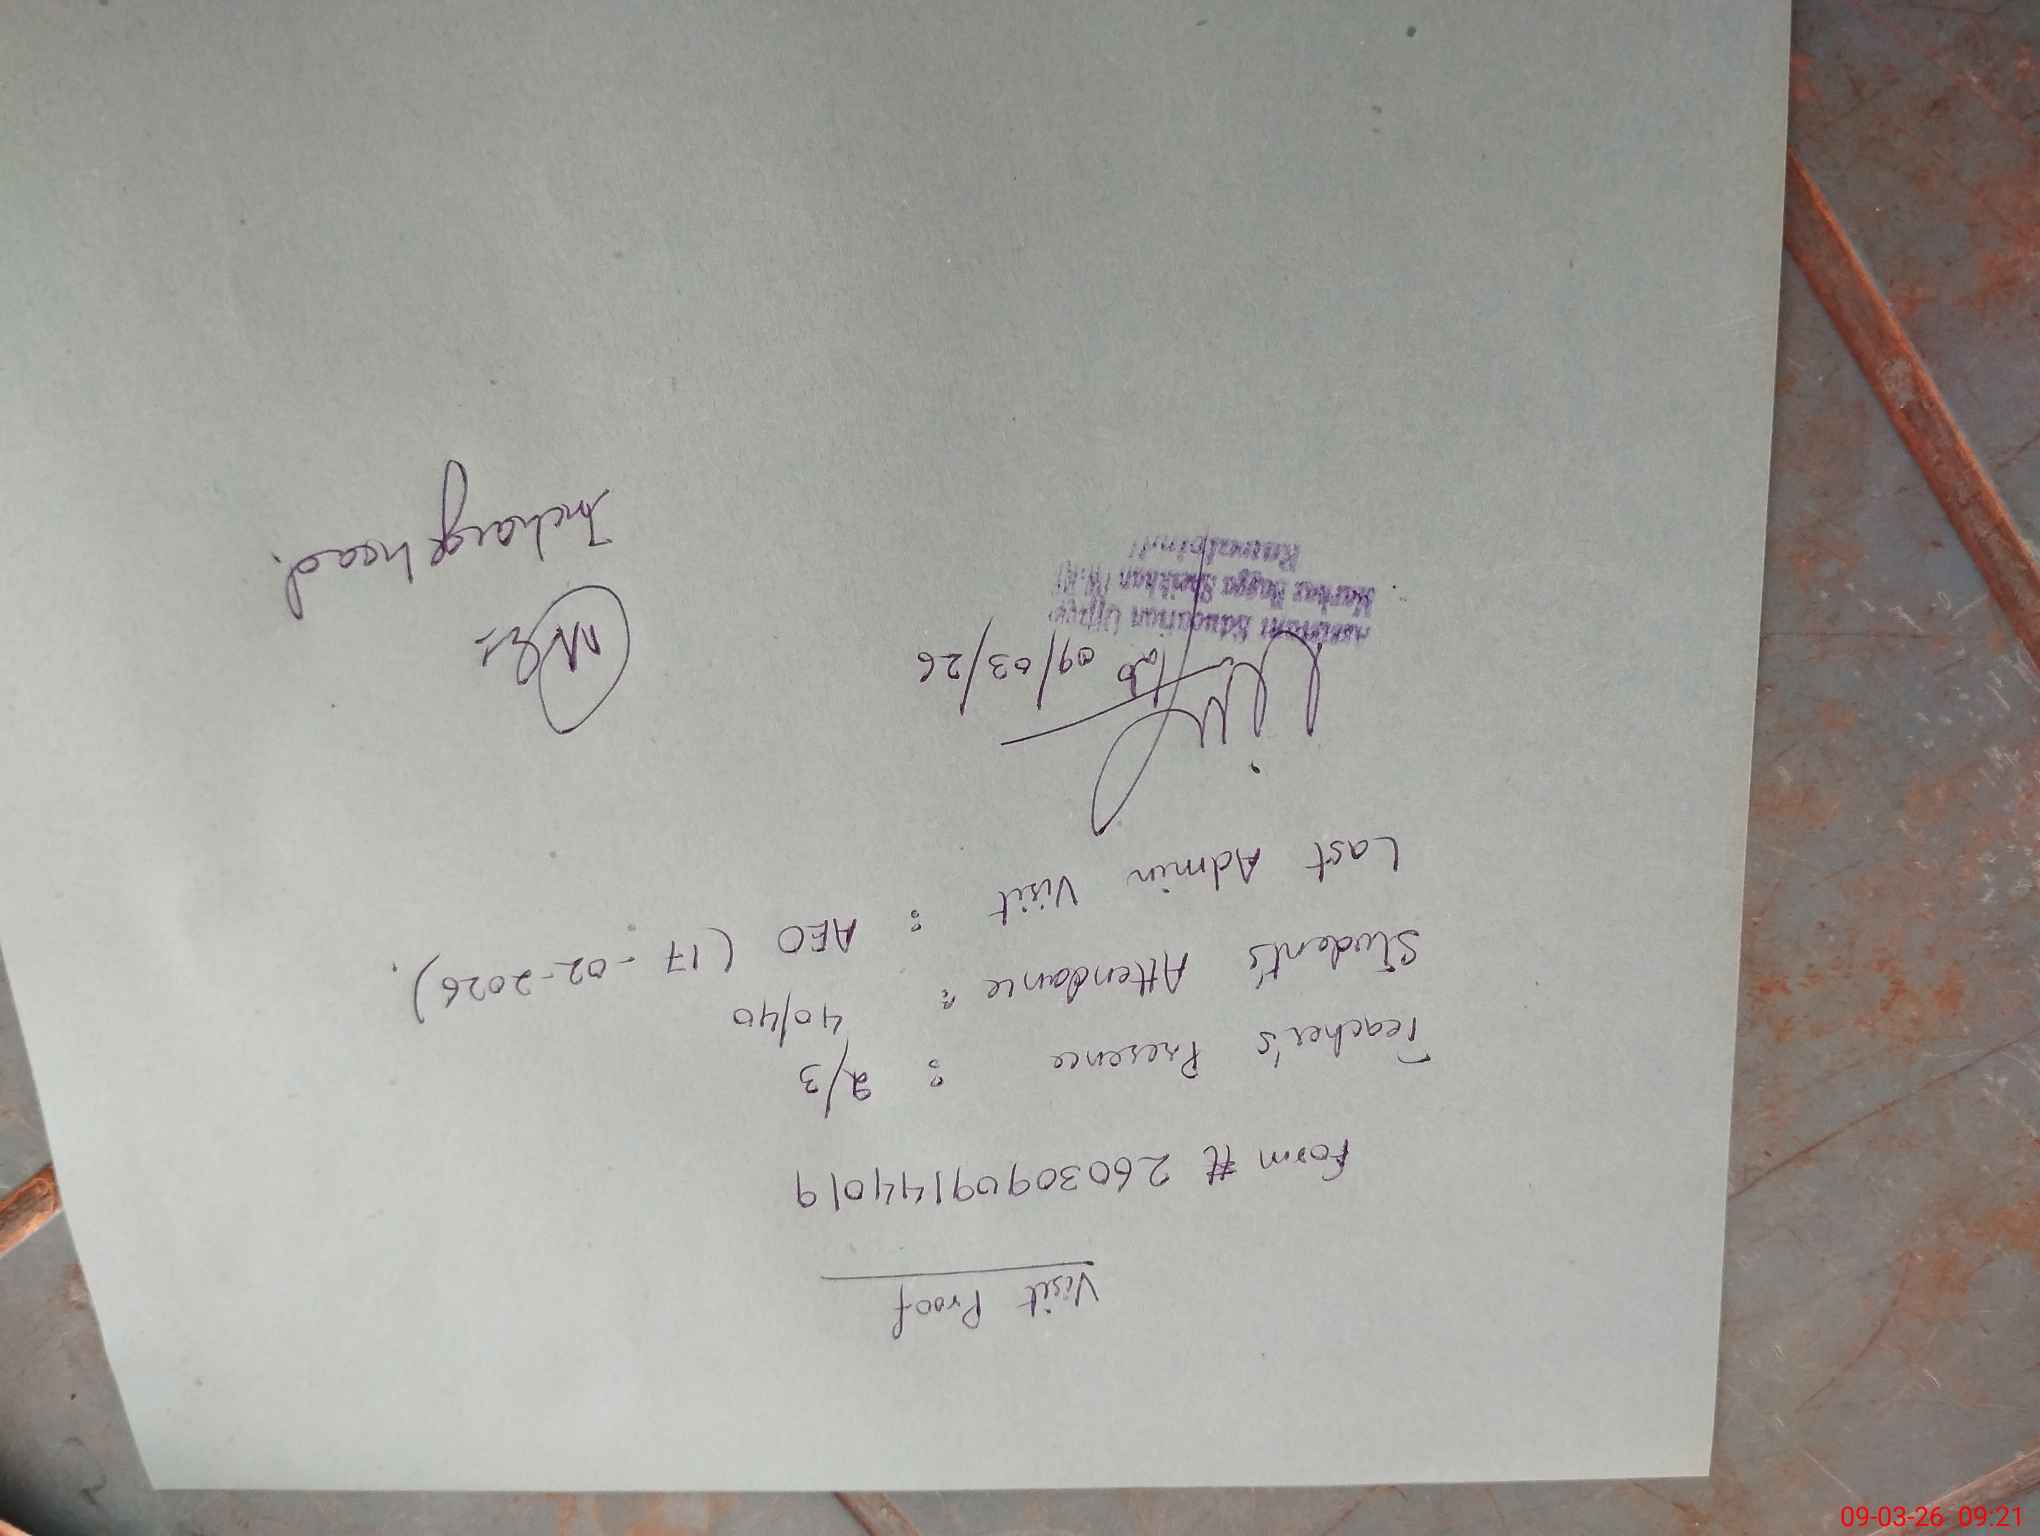 Visit Proof
Form # 2603090914401 9
Teacher's Presence : 2/3
Student's Attendance : 40/40
Last Admin Visit : AEO (17-02-2026).
09/03/26
Assistant Education Officer
Markaz Dagga Sheikhan (M.W)
Rawalpindi
Incharge head.
09-03-26 09:21